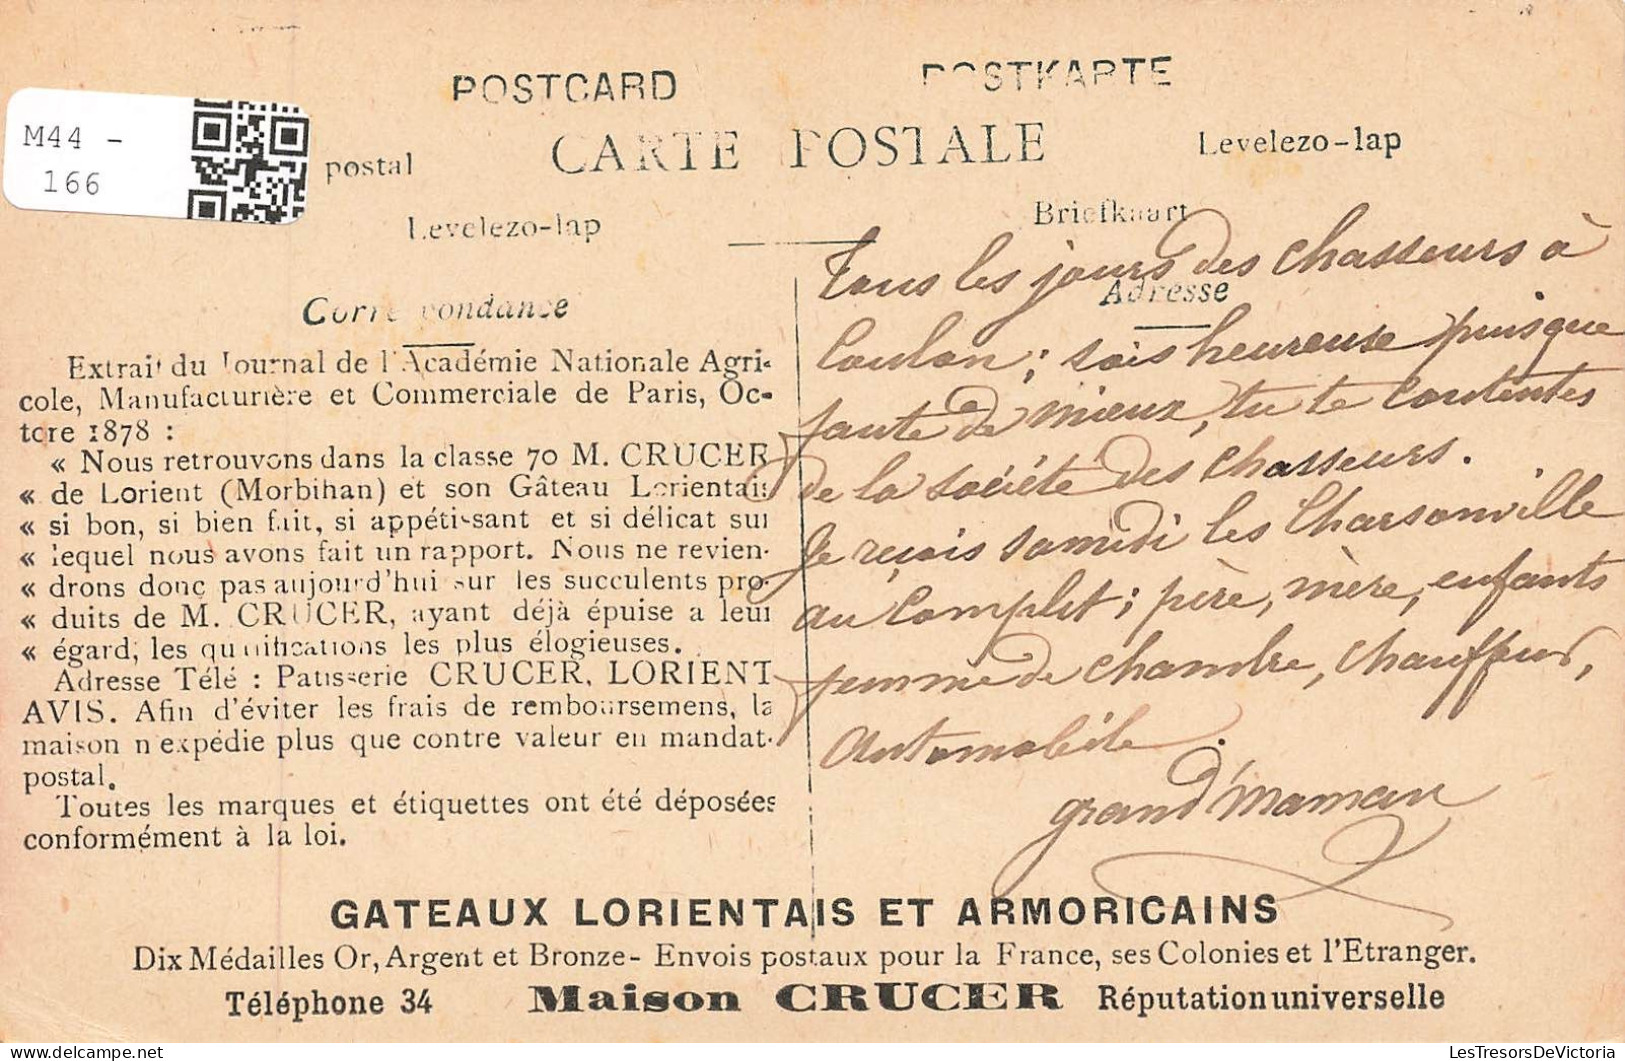 POSTCARD
POSTKARTE
M44 -
166
postal
CARTE POSTALE
Levelezo-lap
Levelezo-lap
Briefkaart
Correspondance
Adresse
Extrait du Journal de l'Académie Nationale Agri-
cole, Manufacturière et Commerciale de Paris, Oc-
tcre 1878 :
« Nous retrouvons dans la classe 70 M. CRUCER
« de Lorient (Morbihan) et son Gâteau Lorientais
« si bon, si bien fait, si appétissant et si délicat sur
« lequel nous avons fait un rapport. Nous ne revien-
« drons donc pas aujourd'hui sur les succulents pro-
« duits de M. CRUCER, ayant déjà épuise a leur
« égard, les qualifications les plus élogieuses.
Adresse Télé : Patisserie CRUCER, LORIENT
AVIS. Afin d'éviter les frais de remboursemens, la
maison n'expédie plus que contre valeur en mandat-
postal.
Toutes les marques et étiquettes ont été déposées
conformément à la loi.
Tous les jours des chasseurs à
Coulon ; sois heureuse puisque
faute de mieux, tu te contentes
de la société des chasseurs.
Je reçois samedi les Charsonville
au complet ; père, mère, enfants
femme de chambre, chauffeur,
automobile.
grand'maman
GATEAUX LORIENTAIS ET ARMORICAINS
Dix Médailles Or, Argent et Bronze- Envois postaux pour la France, ses Colonies et l'Etranger.
Téléphone 34 Maison CRUCER Réputation universelle
LesTresorsDeVictoria